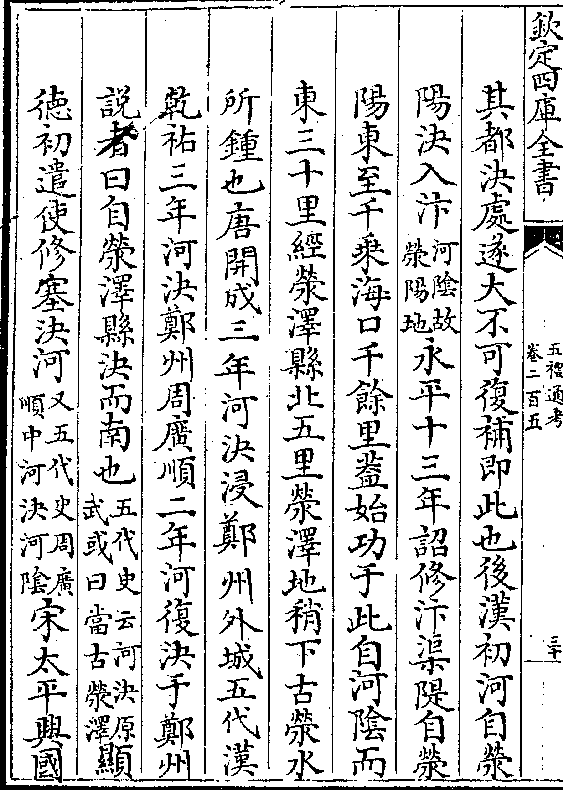 欽定四庫全書
五禮通考
卷二百五
三十
其都決處遂大不可復補即此也後漢初河自滎
陽決入汴河陰故滎陽地永平十三年詔修汴渠隄自滎
陽東至千乗海口千餘里葢始功于此自河陰而
東三十里經滎澤縣北五里滎澤地稍下古滎水
所鍾也唐開成三年河決浸鄭州外城五代漢
乾祐三年河決鄭州周廣順二年河復決于鄭州
説者曰自滎澤縣決而南也五代史云河決原武或曰當古滎澤顯
徳初遣使修塞決河又五代史周廣順中河決河隂宋太平興國